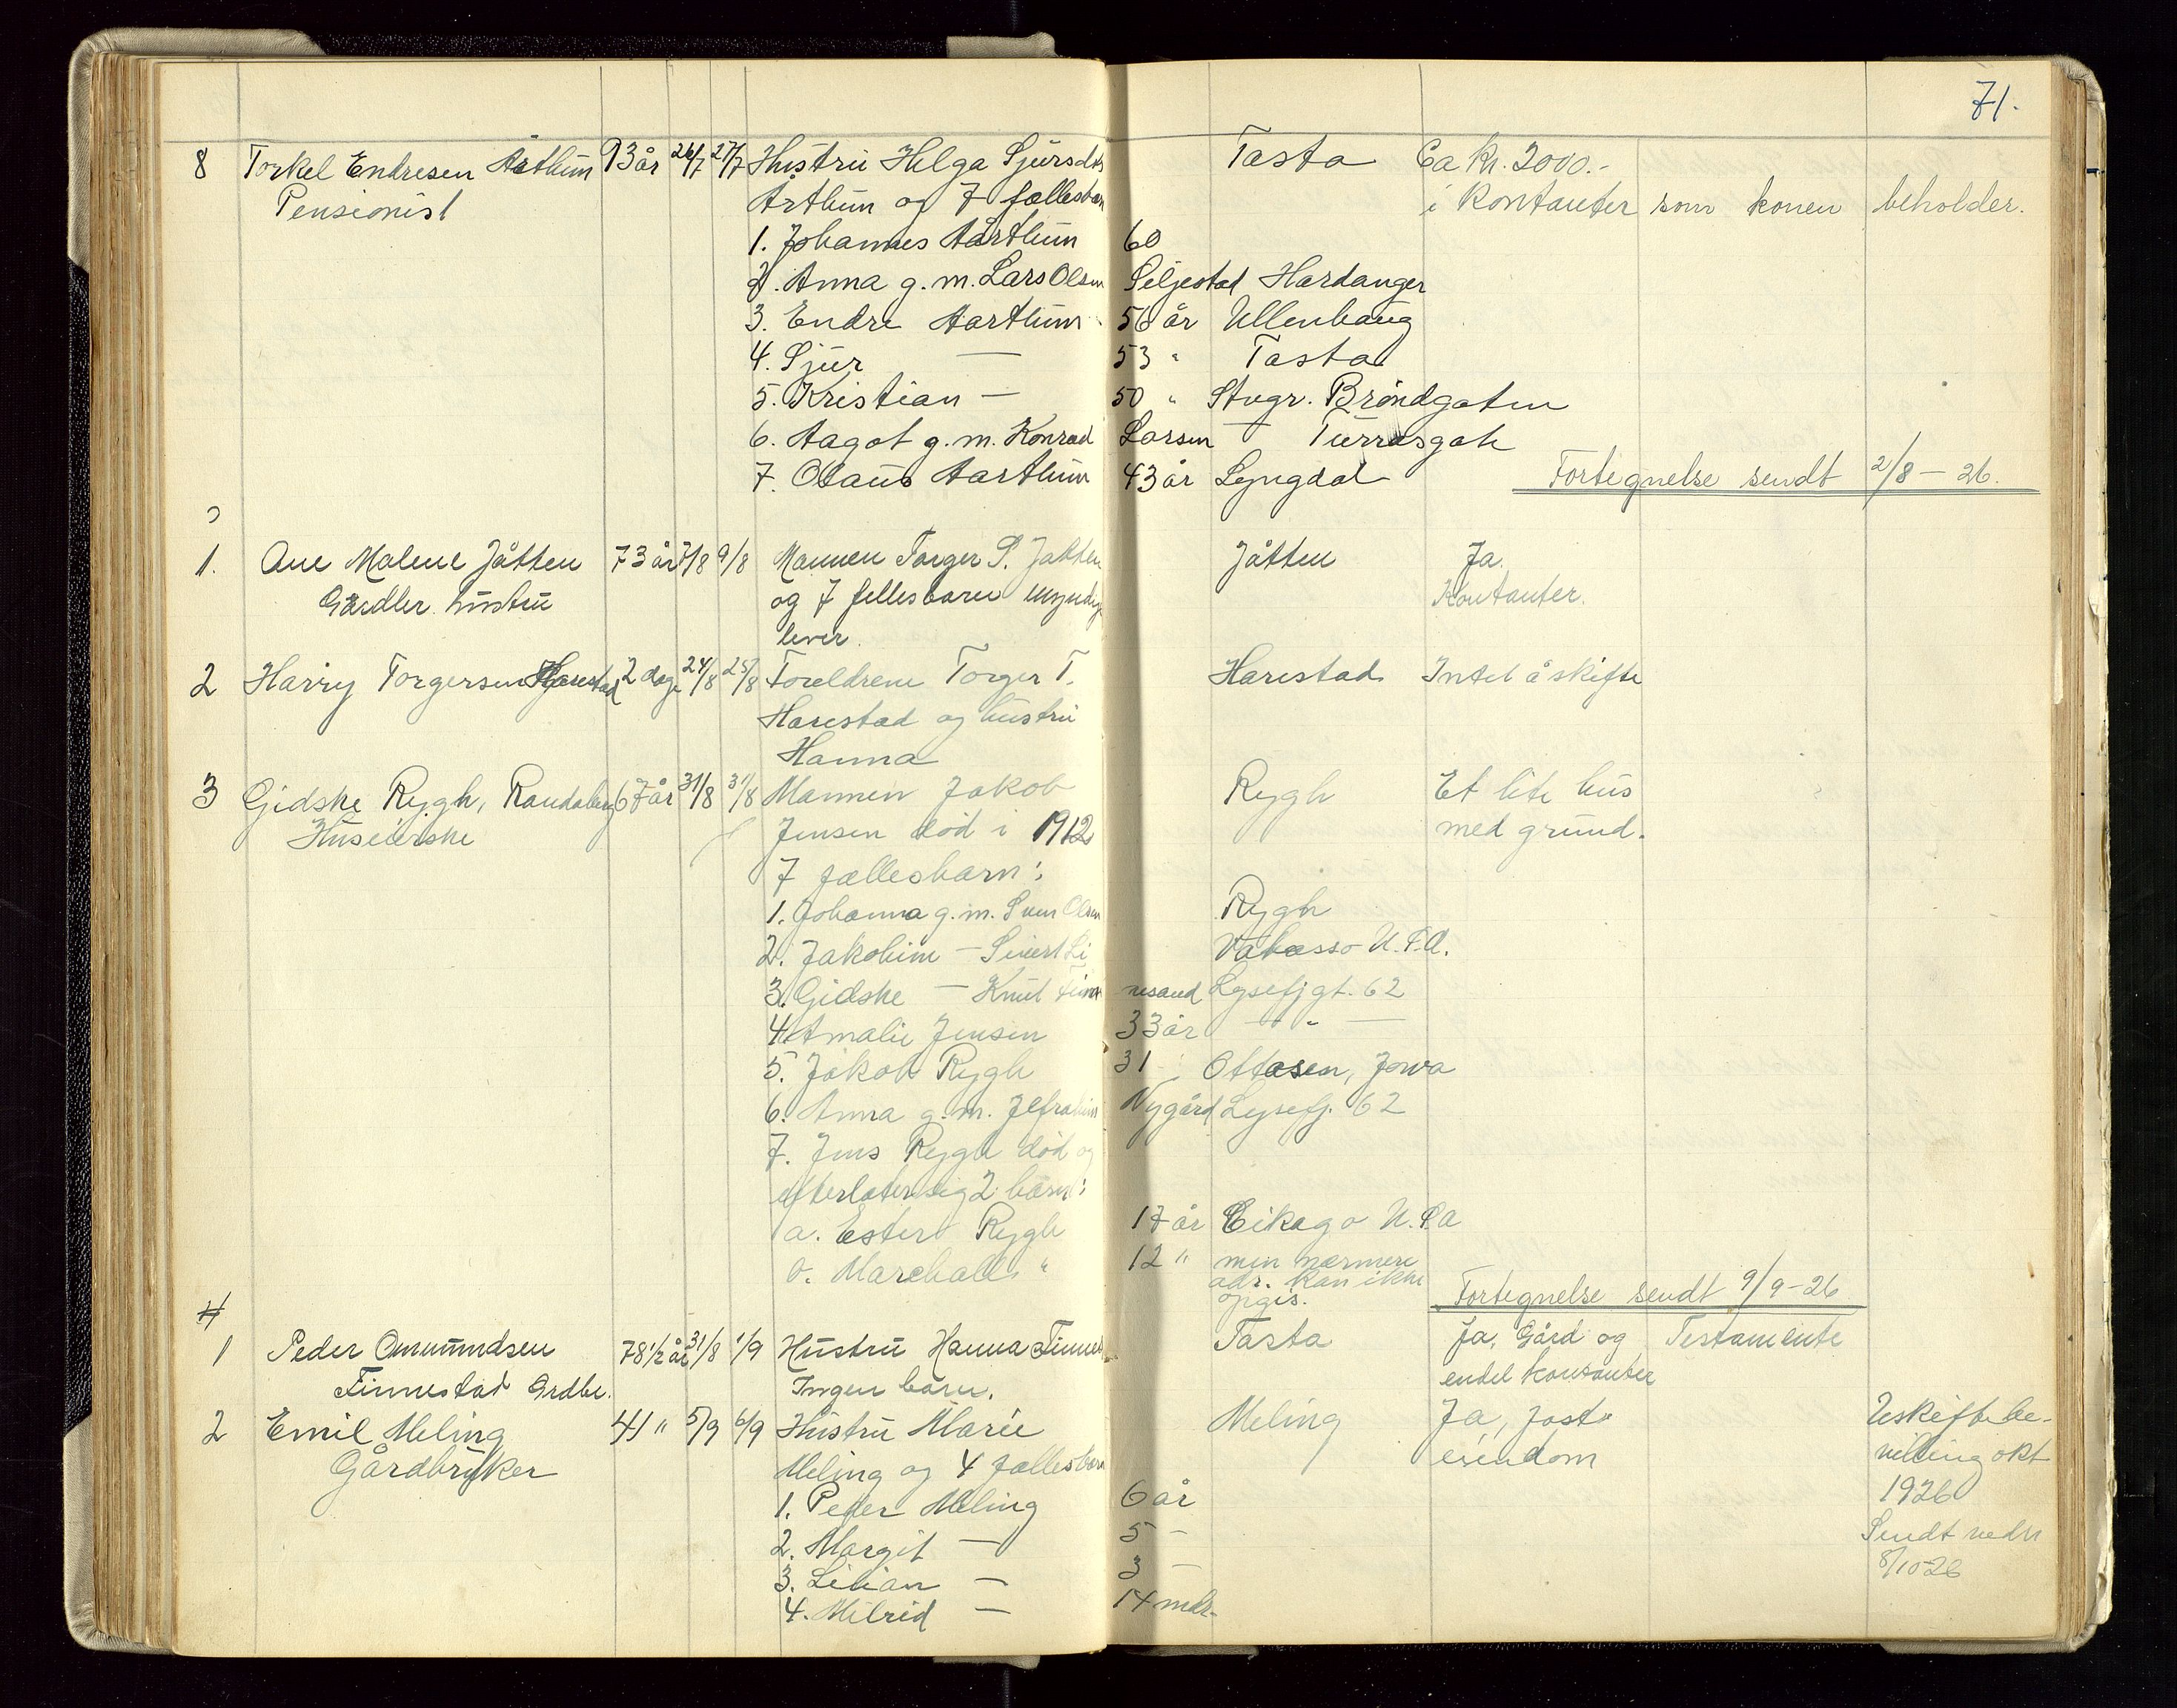 71.
8 Torkel Endresen Årthun 93 år 26/7 27/7 Hustru Helga Sjursdtr Tasta Ca kr. 2000.-
Pensionist Årthun og 7 fællesbarn i kontanter som konen beholder.
1. Johannes Aarthun 60
2. Anna g. m. Lars Olsen Seljestad Hardanger
3. Endre Aarthun 56 år Ullenhaug
4. Sjur — 53 " Tasta
5. Kristian — 50 " Stvgr. Brøndgaten
6. Aagot g. m. Konrad Larsen — Turrasgate
7. Olaus Aarthun 43 år Lyngdal Fortegnelse sendt 2/8 - 26.
1. Ane Malene Jåtten 73 år 7/8 9/8 Mannen Torger S. Jåtten Jåtten Ja.
Gårdbr. hustru og 7 fellesbarn myndige Kontanter.
lever.
2 Harry Torgersen Harestad 2 dage 24/8 25/8 Foreldrene Torger T. Harestad Intet å skifte
Harestad og hustru
Hanna
3 Gidske Rygh, Randaberg 67 år 31/8 31/8 Mannen Jakob Rygh Et lite hus
Huseierske Jensen død i 1912 med grund.
7 fællesbarn:
1. Johanna g. m. Sven Olsen Rygh
2. Jakobine — Sivert Li Vabasso U.S.A.
3. Gidske — Knut Finnesand Lysefjgt. 62
4. Amalie Jensen 33 år — " —
5. Jakob Rygh 31 " Ottosen, Jowa
6. Anna g. m. Nygård Lysefj. 62
7. Jens Rygh død og
efterlater sig 2 barn:
a. Ester Rygh 17 år Cikago U.S.A
b. Marehall " 12 " men nærmere
adr. kan ikke
opgis. Fortegnelse sendt 9/9-26
4
1 Peder Ommundsen 78 1/2 år 31/8 1/9 Hustru Hanna Finnes Tasta Ja, Gård og Testamente
Finnestad Grdbr. Ingen barn. endel kontanter
2 Emil Meling 41 " 5/9 6/9 Hustru Marie Meling Ja, fast Uskiftebe-
Gårdbruker Meling og 4 fællesbarn eiendom villing okt
1. Peder Meling 6 år 1926
2. Margit — 5 — Sendt
3. Lilian — 3 — 8/10-26
4. Milrid — 14 mdr.